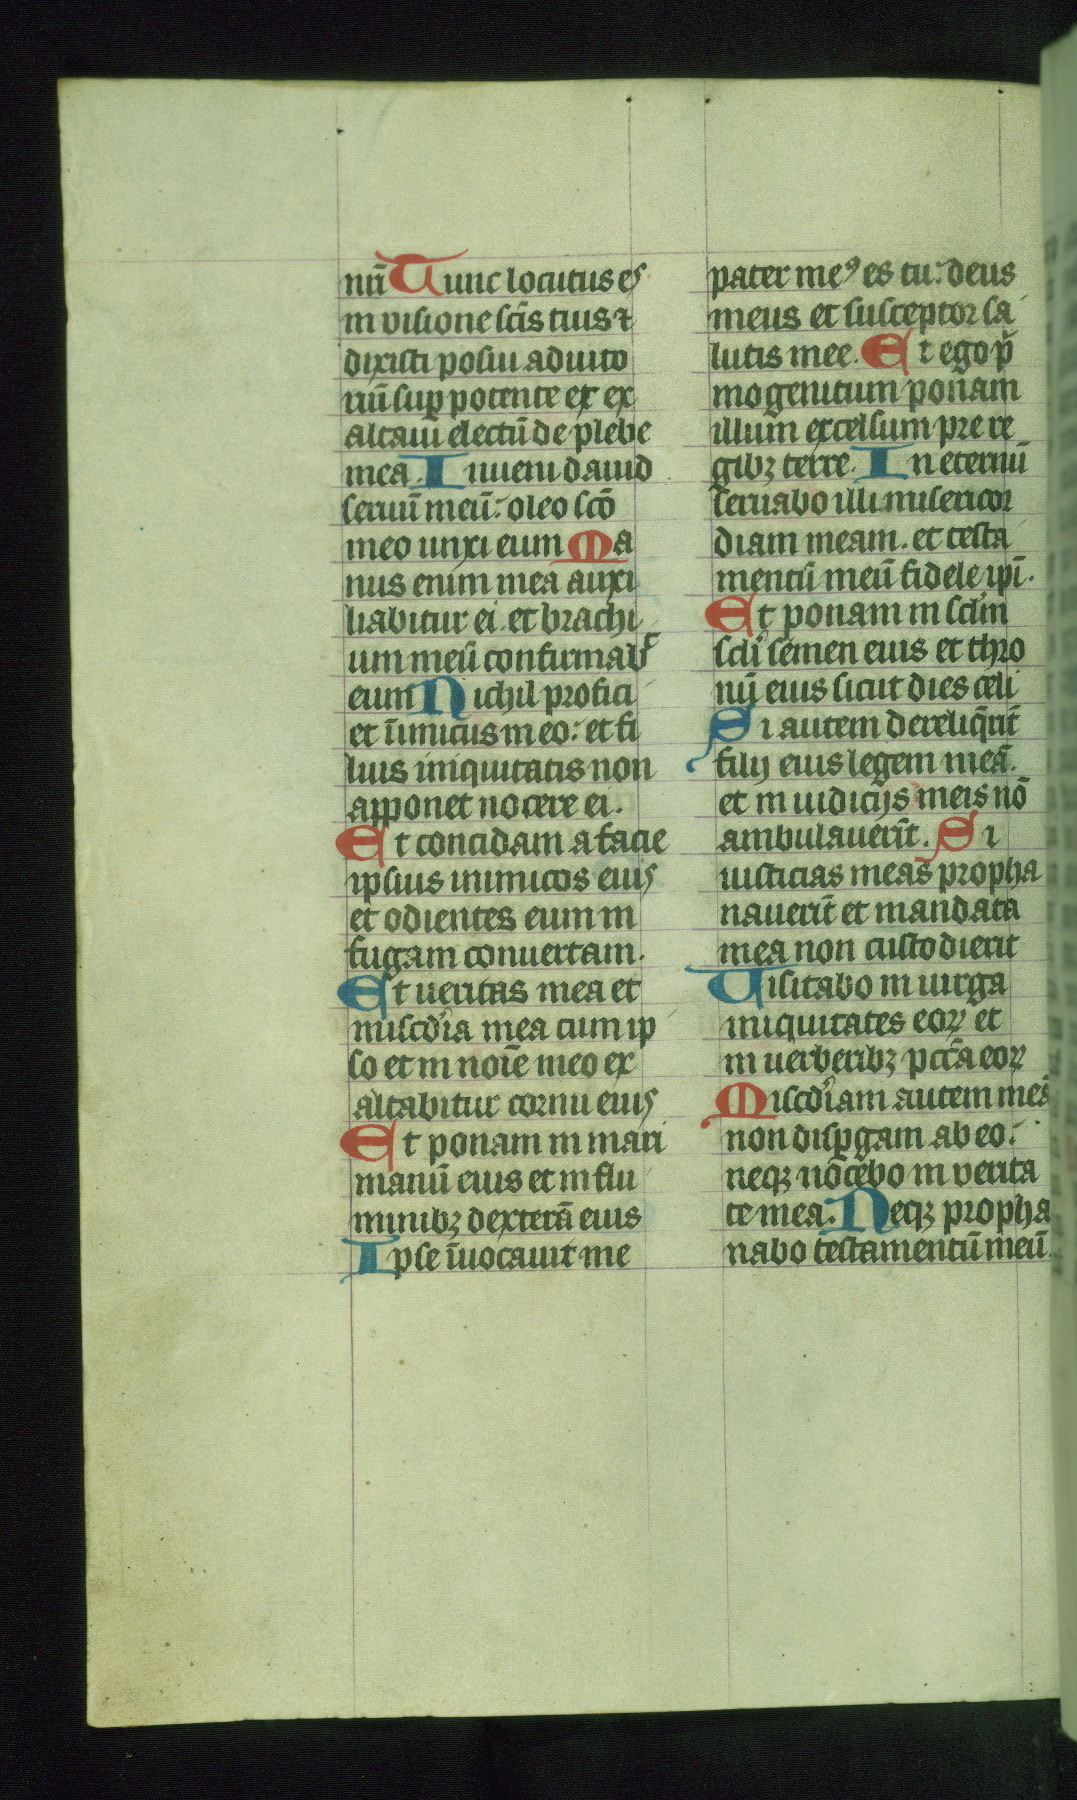 nrī Tunc locutus es
in visione scīs tuis ⁊
dixisti posui adiuto
riū sup potente et ex
altaui electū de plebe
mea. Inueni dauid
seruū meū: oleo scō
meo unxi eum Ma
nus enim mea auxi
liabitur ei. et brachi
um meū confirmabit
eum Nichil profici
et īimicus in eo: et fi
lius iniquitatis non
apponet nocere ei.
Et concidam a facie
ipsius inimicos eius
et odientes eum in
fugam conuertam.
Et ueritas mea et
miscdīa mea cum ip
so et in noīe meo ex
altabitur cornu eius
Et ponam in mari
manū eius et in flu
minibꝫ dexterā eius
Ipse īuocauit me
pater meꝰ es tu: deus
meus et susceptor sa
lutis mee. Et ego pͥ
mogenitum ponam
illum excelsum pre re
gibꝫ terre. In eternū
seruabo illi misericor
diam meam. et testa
mentū meū fidele ipī.
Et ponam in sclm
scli semen eius et thro
nū eius sicut dies celi
Si autem dereliq̄rīt
filij eius legem meā.
et in iudicijs meis nō
ambulauerīt. Si
iusticias meas propha
nauerīt et mandata
mea non custodierit
Uisitabo in uirga
iniquitates eoꝝ et
in uerberibꝫ pctā eoꝝ
Miscdīam autem meā
non dispgam ab eo:
neqꝫ nocebo in verita
te mea. Neqꝫ propha
nabo testamentū meū.